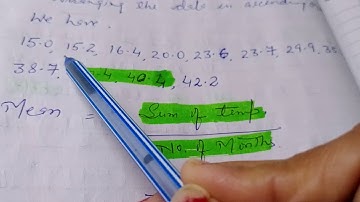 the data in ascendin
We have.
15.0, 15.2, 16.4, 20.0, 23.6, 23.7, 29.9, 
38.7, 40.4, 42.2
Mean = Sum of temp
No. of Months